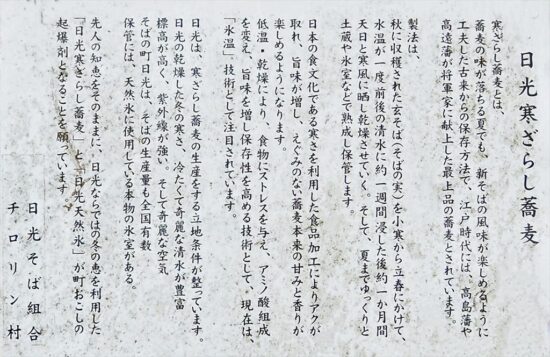 日光寒ざらし蕎麦
寒ざらし蕎麦とは、
蕎麦の味が落ちる夏でも、新そばの風味が楽しめるように
工夫した古来からの保存方法で、江戸時代には、高島藩や
高遠藩が将軍家に献上した最上品の蕎麦とされています。
製法は、
秋に収穫された玄そば(そばの実)を小寒から立春にかけて、
水温が一度前後の清水に約一週間浸した後約一か月間
天日と寒風に晒し乾燥させていく。そして、夏までゆっくりと
土蔵や氷室などで熟成し保管します。
日本の食文化である寒さを利用した食品加工によりアクが
取れ、旨味が増し、えぐみのない蕎麦本来の甘みと香りが
楽しめるようになります。
低温・乾燥により、食物にストレスを与え、アミノ酸組成
を変え、旨味を増し保存性を高める技術として、現在は、
「氷温」技術として注目されています。
日光は、寒ざらし蕎麦の生産をする立地条件が整っています。
日光の乾燥した冬の寒さ、冷たくて奇麗な清水が豊富
標高が高く、紫外線が強い。そして奇麗な空気
そばの町日光は、そばの生産量も全国有数
保管には、天然氷に使用している本物の氷室がある。
先人の知恵をそのままに、日光ならではの冬の恵を利用した
「日光寒ざらし蕎麦」と「日光天然氷」が町おこしの
起爆剤となることを願っています
日光そば組合
チロリン村